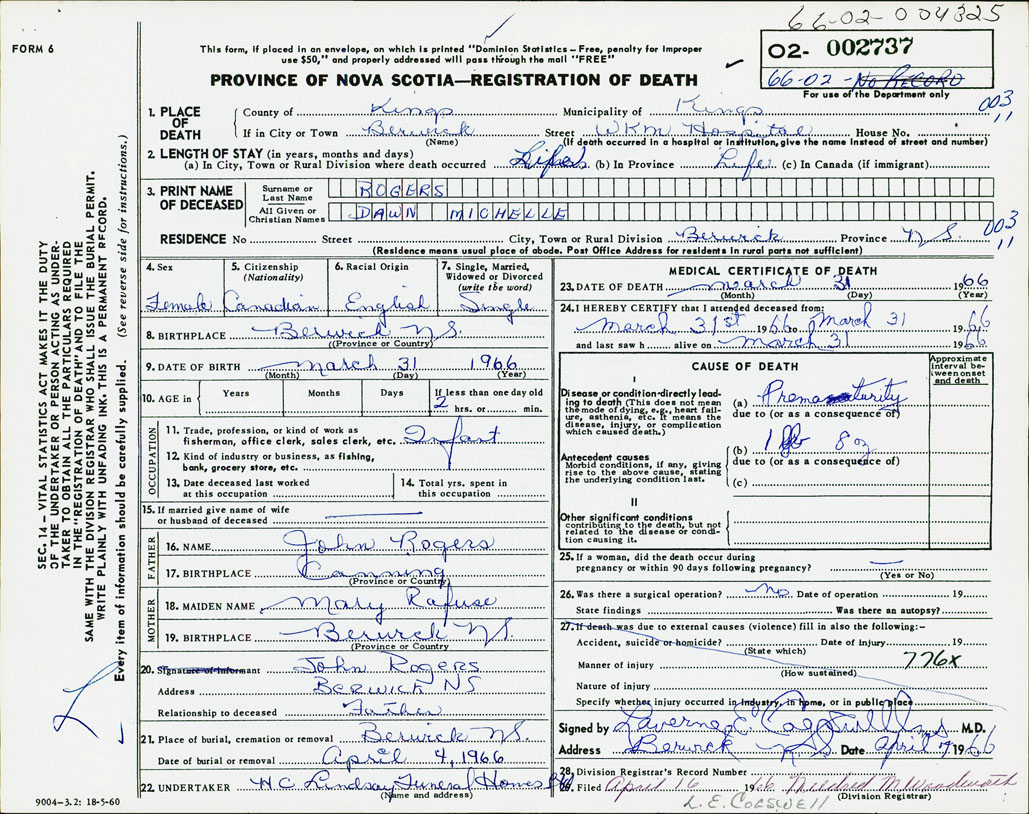 66-02-004325
FORM 6
This form, if placed in an envelope, on which is printed "Dominion Statistics—Free, penalty for improper
use $50," and properly addressed will pass through the mail "FREE"
PROVINCE OF NOVA SCOTIA—REGISTRATION OF DEATH
02- 002737
66-02-No RECORD
For use of the Department only
003
11
1. PLACE OF DEATH
County of Kings Municipality of Kings
If in City or Town Berwick Street WKM Hospital House No.
(Name) (If death occurred in a hospital or institution, give the name instead of street and number)
2. LENGTH OF STAY (in years, months and days)
(a) In City, Town or Rural Division where death occurred Life (b) In Province Life (c) In Canada (if immigrant)
3. PRINT NAME OF DECEASED
Surname or Last Name ROGERS
All Given or Christian Names DAWN MICHELLE
003
11
RESIDENCE No Street City, Town or Rural Division Berwick Province N.S.
(Residence means usual place of abode. Post Office Address for residents in rural parts not sufficient)
4. Sex Female
5. Citizenship (Nationality) Canadian
6. Racial Origin English
7. Single, Married, Widowed or Divorced (write the word) Single
8. BIRTHPLACE Berwick N.S.
(Province or Country)
9. DATE OF BIRTH March 31 1966
(Month) (Day) (Year)
10. AGE in Years Months Days If less than one day old
2 hrs. or min.
OCCUPATION
11. Trade, profession, or kind of work as
fisherman, office clerk, sales clerk, etc. Infant
12. Kind of industry or business, as fishing,
bank, grocery store, etc.
13. Date deceased last worked
at this occupation
14. Total yrs. spent in
this occupation
15. If married give name of wife
or husband of deceased
FATHER
16. NAME John Rogers
17. BIRTHPLACE Canning
(Province or Country)
MOTHER
18. MAIDEN NAME Mary Rafuse
19. BIRTHPLACE Berwick N.S.
(Province or Country)
20. Signature of informant John Rogers
Address BERWICK NS
Relationship to deceased Father
21. Place of burial, cremation or removal Berwick N.S.
Date of burial or removal April 4, 1966
22. UNDERTAKER H.C. Lindsay Funeral Homes Ltd
(Name and address)
9004-3.2: 18-5-60
SEC. 14—VITAL STATISTICS ACT MAKES IT THE DUTY
OF THE UNDERTAKER OR PERSON ACTING AS UNDER-
TAKER TO OBTAIN ALL THE PARTICULARS REQUIRED
IN THE "REGISTRATION OF DEATH" AND TO FILE THE
SAME WITH THE DIVISION REGISTRAR WHO SHALL ISSUE THE BURIAL PERMIT.
WRITE PLAINLY WITH UNFADING INK. THIS IS A PERMANENT RECORD.
Every item of information should be carefully supplied. (See reverse side for instructions.)
MEDICAL CERTIFICATE OF DEATH
23. DATE OF DEATH March 31 1966
(Month) (Day) (Year)
24. I HEREBY CERTIFY that I attended deceased from:
March 31st 1966 to March 31 1966
and last saw h alive on March 31 1966
CAUSE OF DEATH
Approximate interval between onset and death
I
Disease or condition-directly lead-
ing to death (This does not mean
the mode of dying, e.g., heart fail-
ure, asthenia, etc. It means the
disease, injury, or complication
which caused death.)
(a) Prematurity
due to (or as a consequence of)
Antecedent causes
Morbid conditions, if any, giving
rise to the above cause, stating
the underlying condition last.
(b) 1 lb 8 oz
due to (or as a consequence of)
(c)
II
Other significant conditions
contributing to the death, but not
related to the disease or condi-
tion causing it.
25. If a woman, did the death occur during
pregnancy or within 90 days following pregnancy?
(Yes or No)
26. Was there a surgical operation? No. Date of operation 19
State findings Was there an autopsy?
27. If death was due to external causes (violence) fill in also the following:—
Accident, suicide or homicide? Date of injury 19
(State which)
Manner of injury 776X
(How sustained)
Nature of injury
Specify whether injury occurred in industry, in home, or in public place
Signed by Laverne E Cogswell M.D.
Address Berwick N.S. Date April 7 1966
28. Division Registrar's Record Number
29. Filed April 16 1966 Mildred M. Woodworth
(Division Registrar)
L.E. COGSWELL